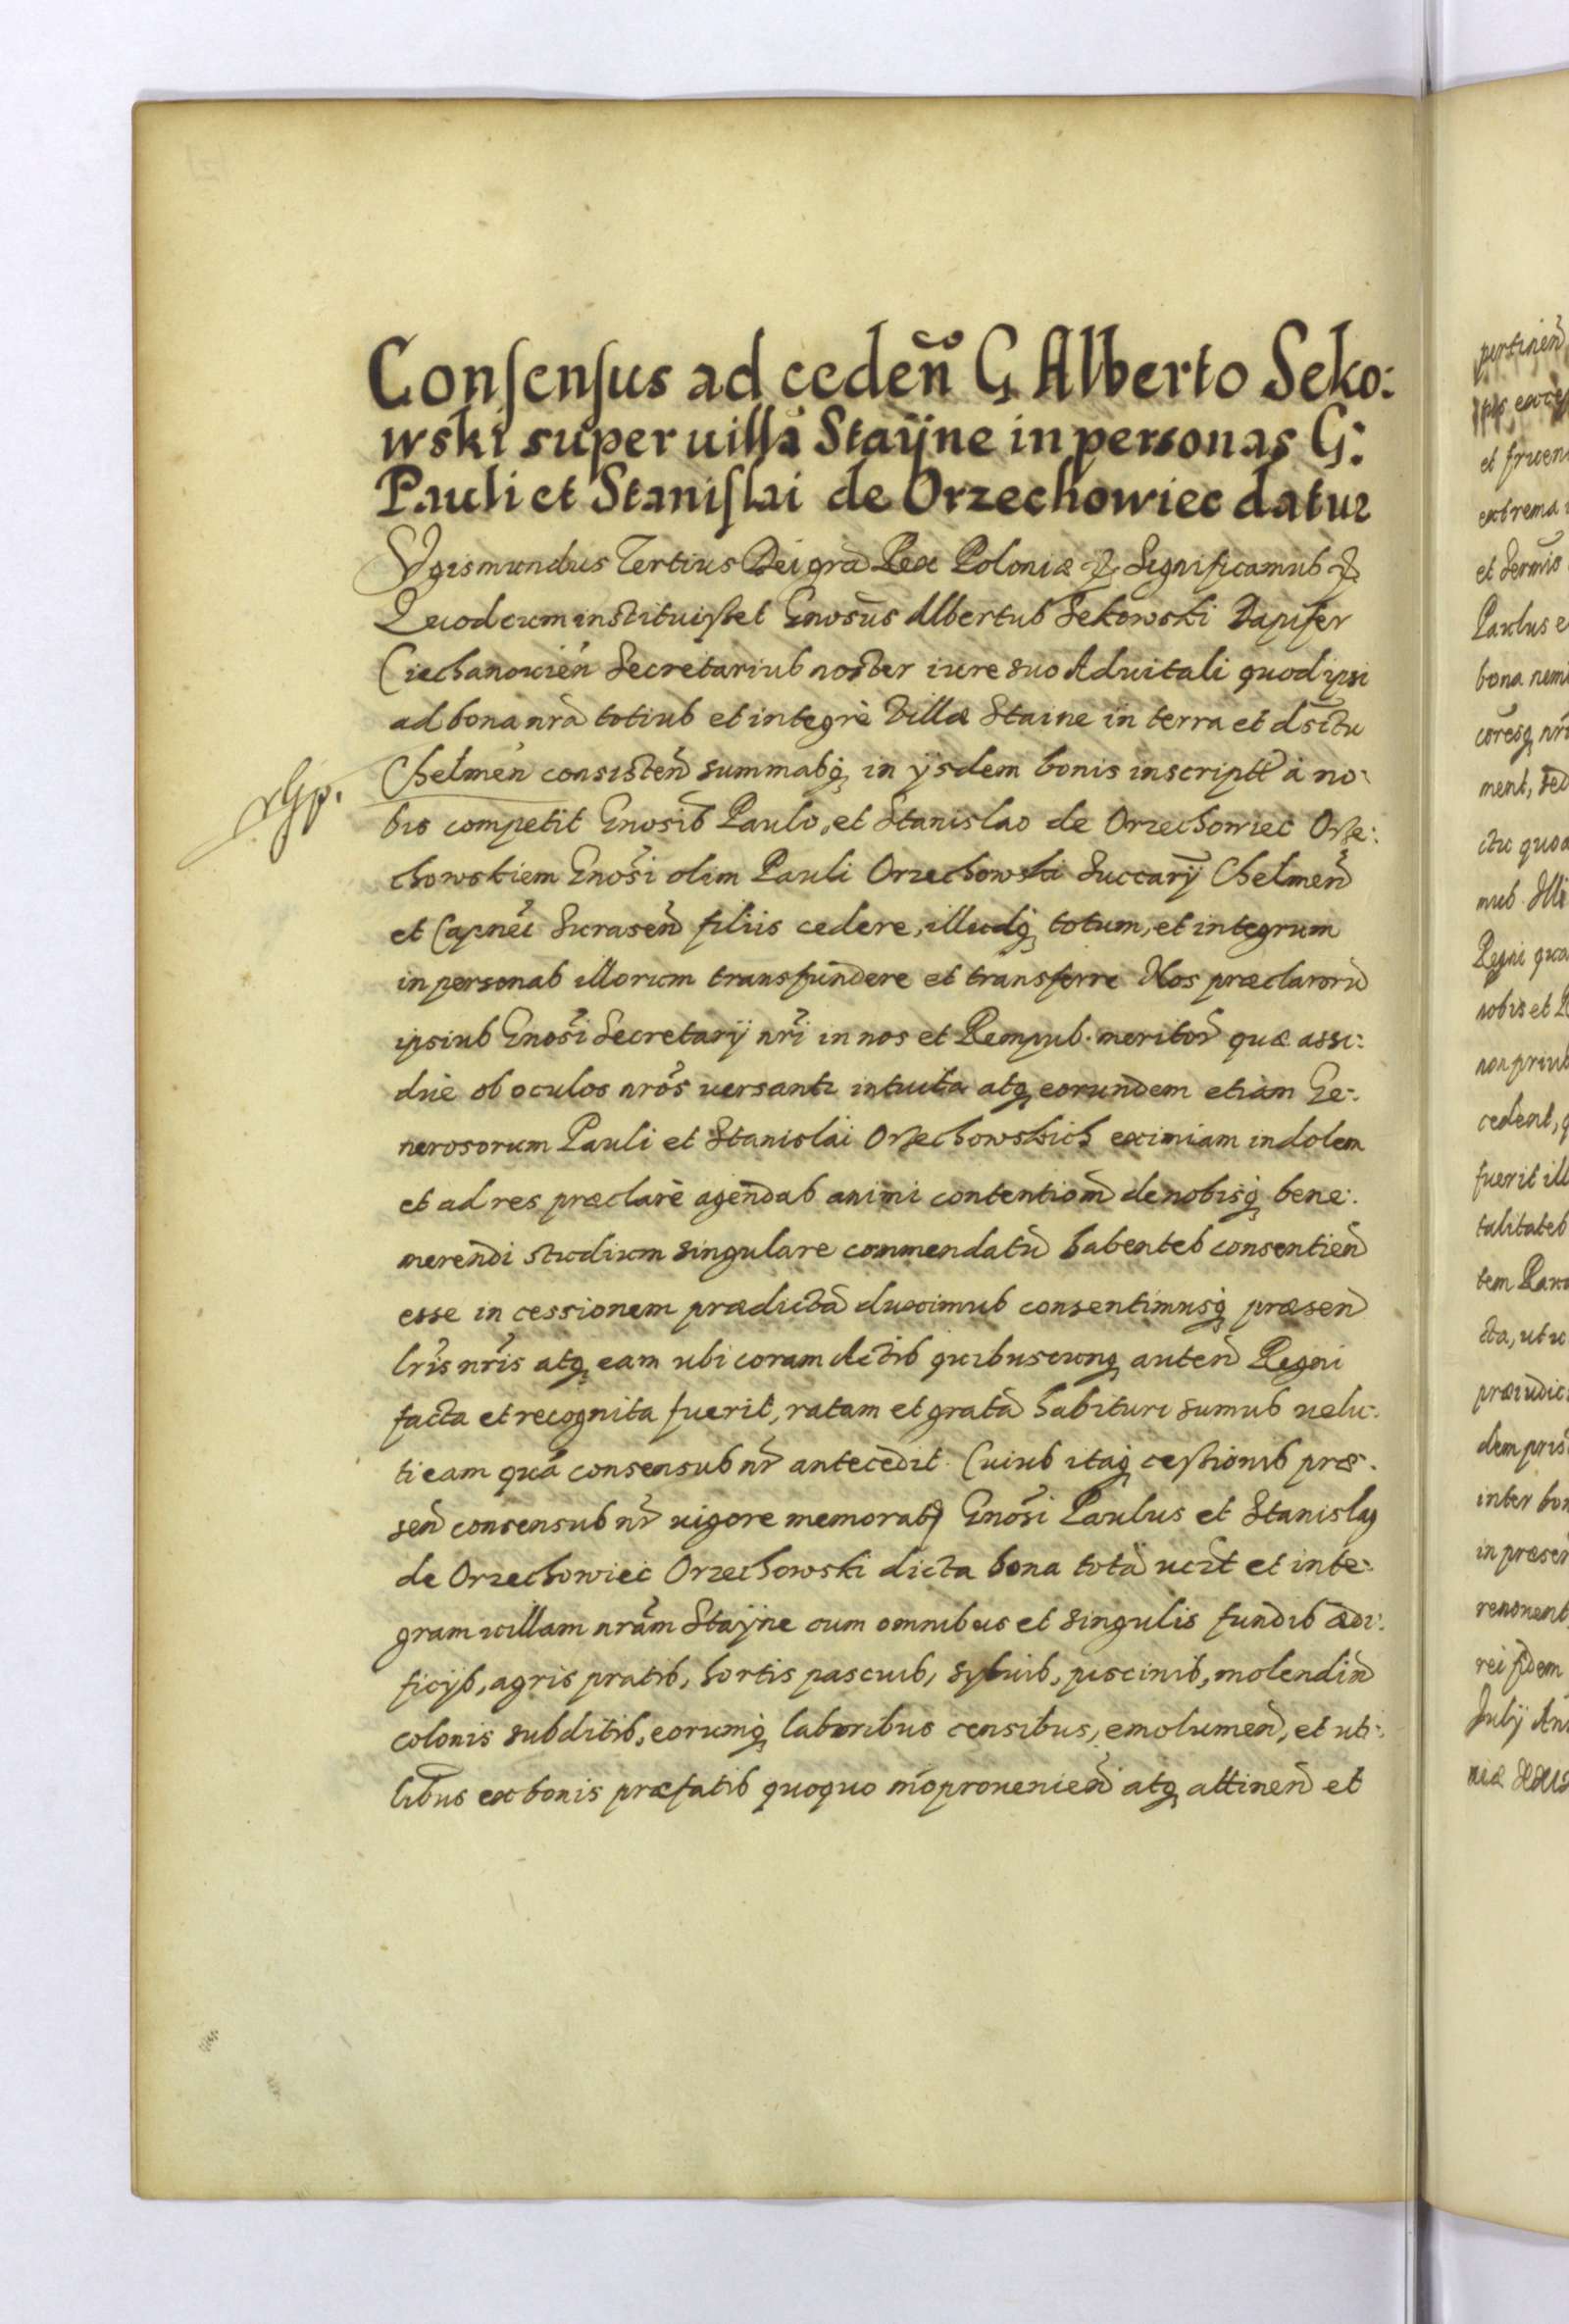 Consensus ad cedeñ G Alberto Seko:
wski super uillā Staÿne in personas G:
Pauli et Stanislai de Orzechowiec datur
Sygismundus Tertius Dei gra Rex Poloniæ &. Significamus &.
Quod cum instituisset Gnosus Albertus Sekowski Dapifer
Ciechanouien Secretarius noster iure suo Aduitali quod ipsi
ad bona nra totius et integrè Villæ Staine in terra et dsctu
Chelmen consisten summasq in ysdem bonis inscriptt à no:
rGp.
bis competit Gnosis Paulo, et Stanislao de Orzechowiec Orze:
chowskiem Gnosi olim Pauli Orzechowski Succary Chelmen
et Capnei Surasen filiis cedere, illudq totum, et integrum
in personas illorum transfundere et transferre Nos præclaroru
ipsius Gnosi Secretary nri in nos et Rempub. meritor quæ assi:
duè ob oculos nros uersanti intuita atq eorundem etiam Ge:
nerosorum Pauli et Stanislai Orzechowskich eximiam indolem
et ad res præclarè agendas animi contentiom de nobisq bene:
merendi studium singulare commendatu habentes consentien
esse in cessionem prædicta duximus consentimusq præsen
lris nris atq eam ubi coram Actis quibuscunq auten Regni
facta et recognita fuerit, ratam et grata habituri sumus uelu:
ti eam quá consensus nr antecedit. Cuius itaq cessionis præ:
sen consensus nr uigore memorati Gnosi Paulus et Stanislaus
de Orzechowiec Orzechowski dicta bona tota uczt et inte:
gram uillam nram Staÿne cum omnibus et singulis fundis ædi:
ficys, agris pratis, hortis pascuis, syluis, piscinis, molendin
colonis subditis, eorumq laboribus censibus, emolumen, et uti:
libus ex bonis præfatis quoquo mo prouenien atq attinen et